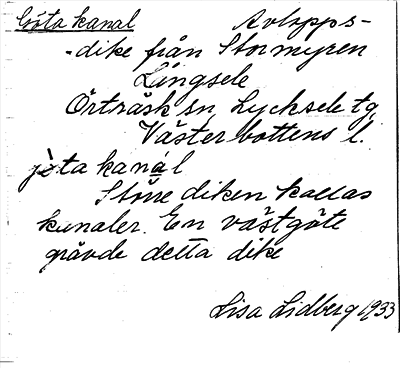 Göta kanal Avlopps-
-dike från Stormyren
Långsele
Örträsk sn Lycksele tg.
Västerbottens l.
jòta kanál
Större diken kallas
kanaler. En västgöte
grävde detta dike
Lisa Lidberg 1933